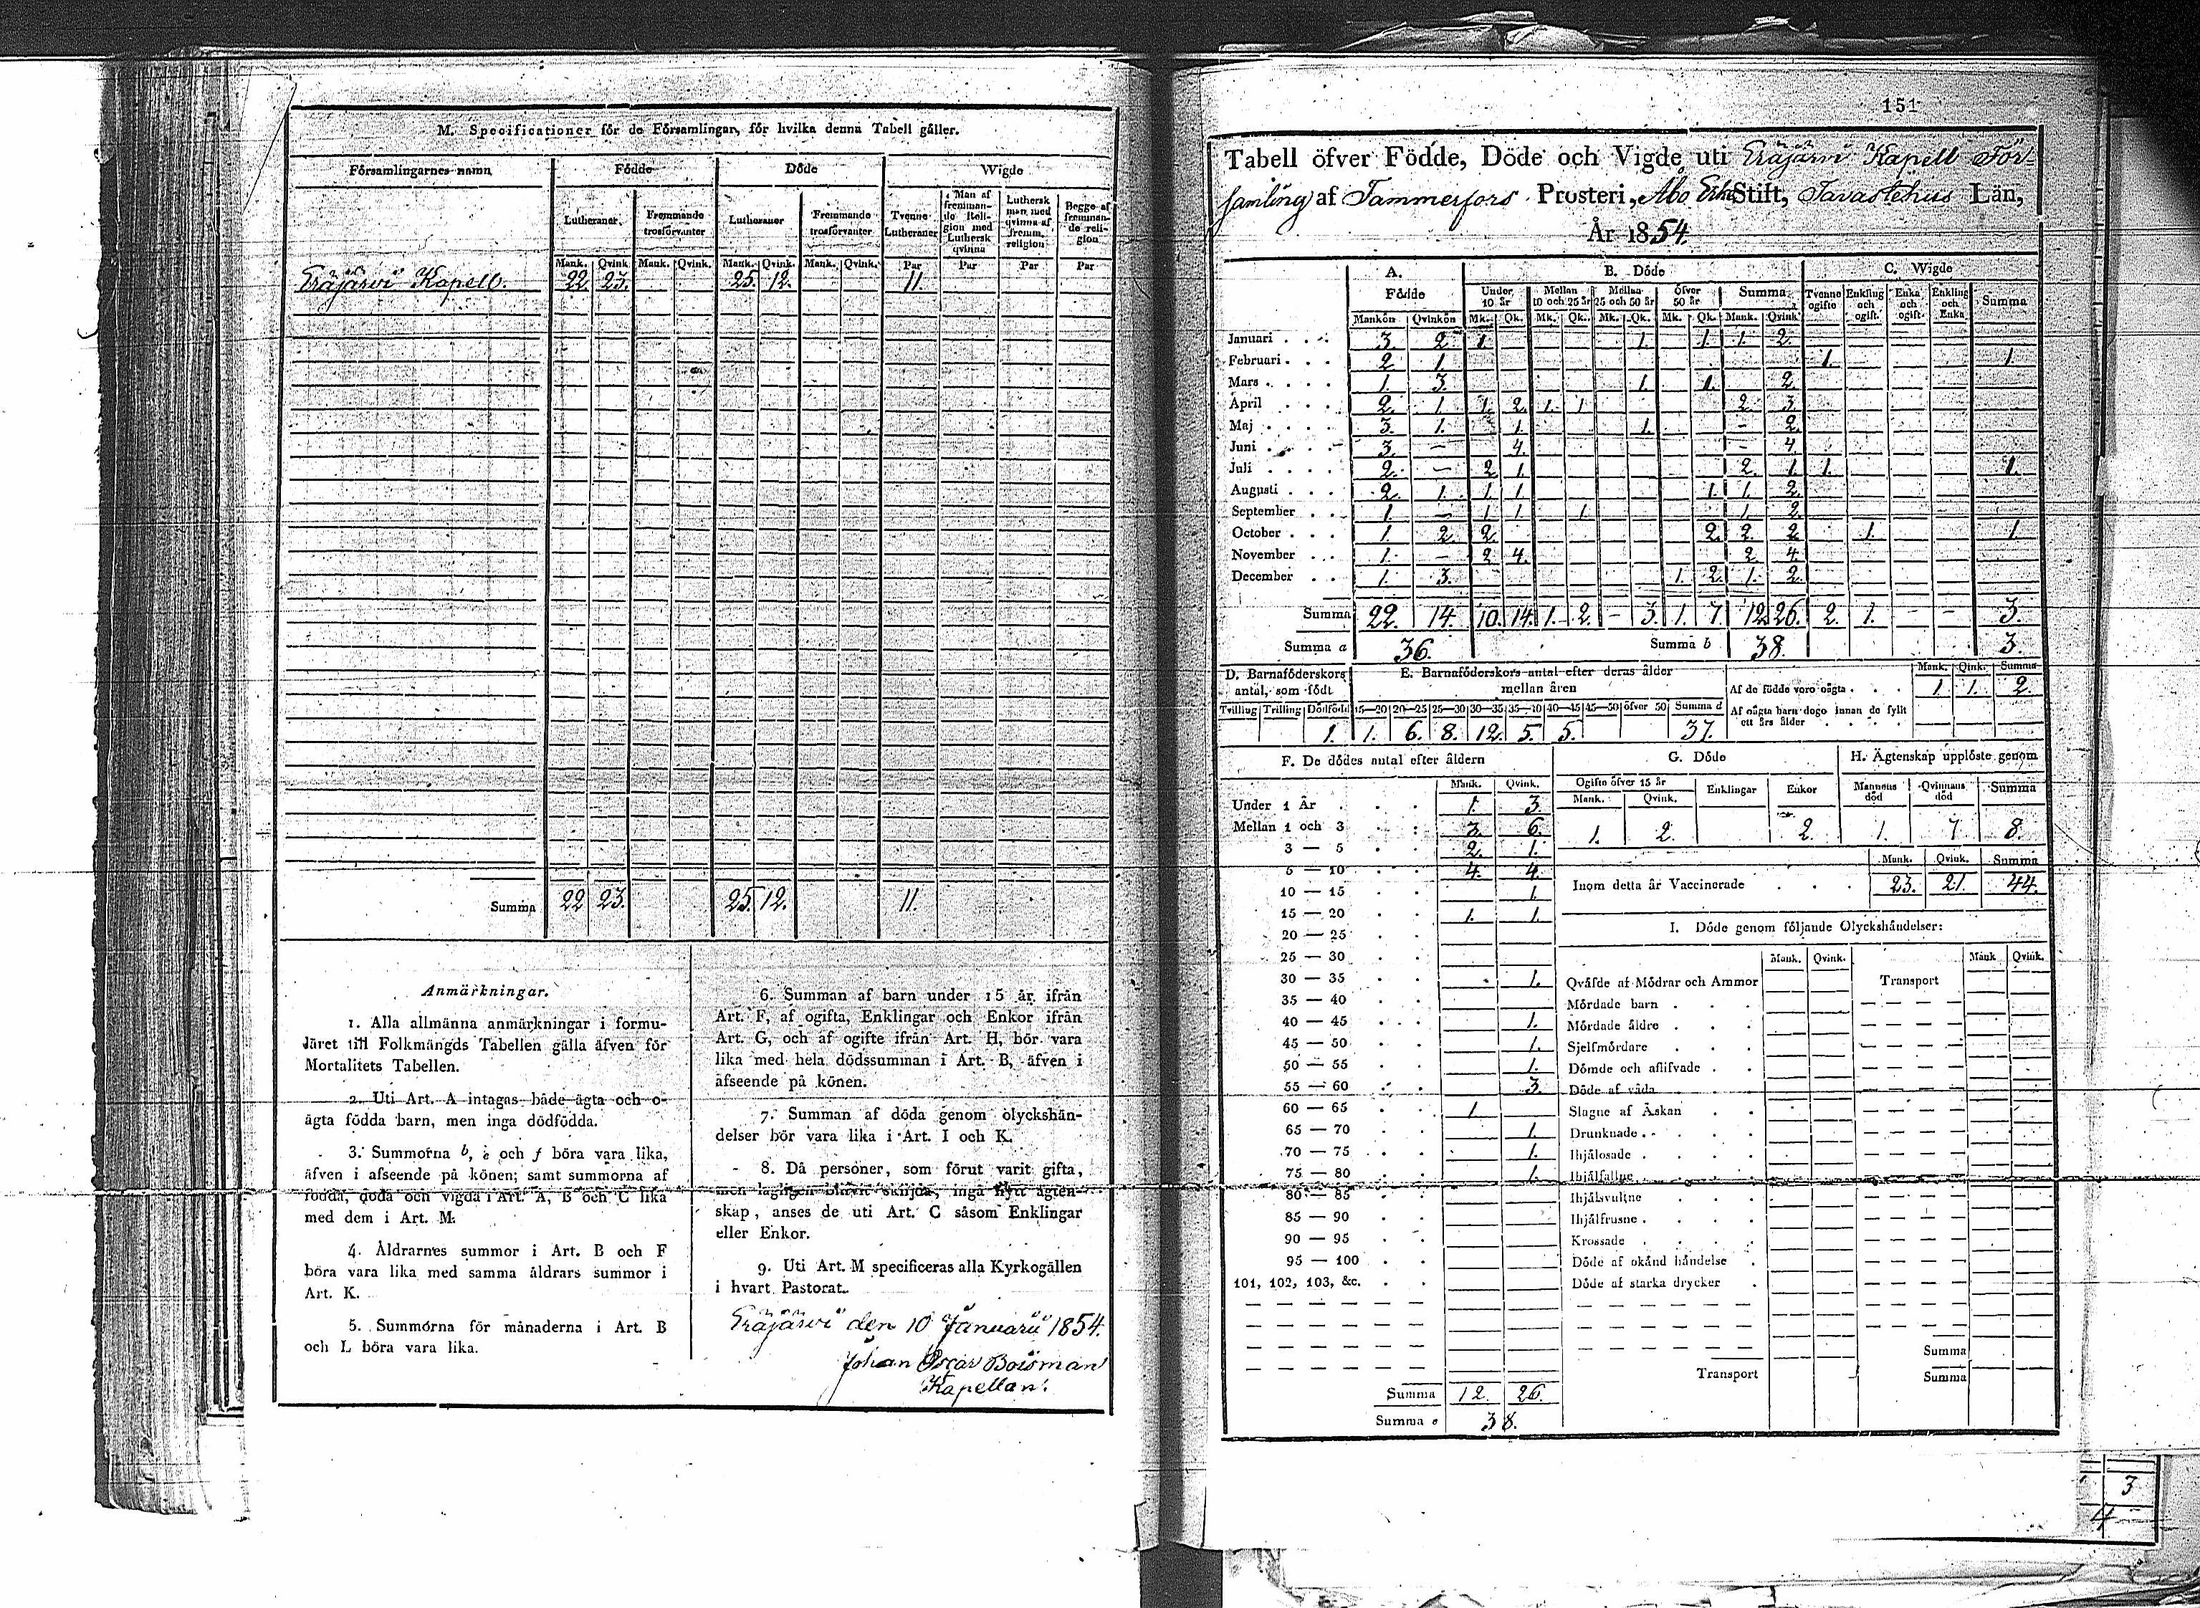 M. Specificationer för de Församlingar, för hvilka denna Tabell gäller.
Församlingarnes namn
Födde
Döde
Wigde
Lutheraner
Fremmande trosförvanter
Lutheraner
Fremmande trosförvanter
Tvenne Lutheraner
Man af fremmande Religion med Luthersk qvinna
Luthersk man med qvinna af fremm. religion
Begge af fremmande religion
Mank. Qvink. Mank. Qvink. Mank. Qvink. Mank. Qvink. Par Par Par Par
Eräjärvi Kapell. 22. 23. 25. 12. 11.
Summa 22 23. 25. 12. 11.
Anmärkningar.
1. Alla allmänna anmärkningar i formu-
läret till Folkmängds Tabellen gälla äfven för
Mortalitets Tabellen.
2. Uti Art. A intagas både ägta och o-
ägta födda barn, men inga dödfödda.
3. Summorna b, e och f böra vara lika,
äfven i afseende på könen; samt summorna af
födda, döda och vigda i Art. A, B och C lika
med dem i Art. M.
4. Åldrarnes summor i Art. B och F
böra vara lika med samma åldrars summor i
Art. K.
5. Summorna för månaderna i Art. B
och L böra vara lika.
6. Summan af barn under 15 år ifrån
Art. F, af ogifta, Enklingar och Enkor ifrån
Art. G, och af ogifte ifrån Art. H, bör vara
lika med hela dödssumman i Art. B, äfven i
afseende på könen.
7. Summan af döda genom olyckshän-
delser bör vara lika i Art. I och K.
8. Då personer, som förut varit gifta,
men lagligen blifvit skiljda, ingå nytt ägten-
skap, anses de uti Art. C såsom Enklingar
eller Enkor.
9. Uti Art. M specificeras alla Kyrkogällen
i hvart Pastorat.
Eräjärvi den 10 Januarii 1854.
Johan Oscar Boisman
Kapellan.
151
Tabell öfver Födde, Döde och Vigde uti Eräjärvi Kapell För-
samling af Tammerfors Prosteri, Åbo Erke Stift, Tavastehus Län,
År 1854.
A. Födde
B. Döde
C. Wigde
Under 10 år
Mellan 10 och 25 år
Mellan 25 och 50 år
Öfver 50 år
Summa
Tvenne ogifte
Enkling och ogift
Enka och ogift
Enkling och Enka
Summa
Mankön Qvinkön Mk. Qk. Mk. Qk. Mk. Qk. Mk. Qk. Mank. Qvink
Januari 3. 2. 1. 1. 1. 1. 2.
Februari 2. 1. 1. 1.
Mars 1. 3. 1. 1. 2.
April 2. 1. 1. 2. 1. 1 2. 3.
Maj 3. 1. 1. 1. - 2.
Juni 3. - 4. - 4.
Juli 2. - 2. 1. 2. 1. 1. 1.
Augusti 2. 1. 1. 1 1. 1. 2.
September 1. - 1 1. 1 1. 2.
October 1. 2. 2. 2. 2. 2. 1. 1.
November 1. - 2. 4. 2. 4.
December 1. 3. 1. 2. 1. 2.
Summa 22. 14. 10. 14. 1. 2. - 3. 1. 7. 12. 26. 2. 1. - - 3.
Summa a 36. Summa b 38. 3.
D. Barnaföderskors antal, som födt
E. Barnaföderskors antal efter deras ålder
mellan åren
Tvilling Trilling Dödfödd 15—20 20—25 25—30 30—35 35—40 40—45 45—50 öfver 50 Summa d
1. 1. 6. 8. 12. 5. 5. 37.
Mank. Qink. Summa
Af de födde voro oägta 1 1. 2.
Af oägta barn dogo innan de fyllt
ett års ålder
F. De dödes antal efter åldern
Mank. Qvink.
Under 1 År 1. 3.
Mellan 1 och 3 3. 6.
3 — 5 2. 1.
5 — 10 4. 4.
10 — 15 1.
15 — 20 1. 1.
20 — 25
25 — 30
30 — 35 1.
35 — 40
40 — 45 1.
45 — 50 1.
50 — 55 1.
55 — 60 3.
60 — 65 1
65 — 70 1.
70 — 75 1.
75 — 80 1.
80 — 85
85 — 90
90 — 95
95 — 100
101, 102, 103, &c.
Summa 12. 26.
Summa e 38.
G. Döde
Ogifte öfver 15 år Enklingar Enkor
Mank. Qvink.
1. 2. 2.
H. Ägtenskap upplöste genom
Mannens död Qvinnans död Summa
1. 7 8.
Mank. Qvink. Summa
Inom detta år Vaccinerade 23. 21. 44.
I. Döde genom följande Olyckshändelser:
Mank. Qvink. Mank Qvink.
Qväfde af Mödrar och Ammor Transport
Mördade barn
Mördade äldre
Sjelfmördare
Dömde och aflifvade
Döde af våda
Slagne af Åskan
Drunknade
Ihjälosade
Ihjälfallne
Ihjälsvultne
Ihjälfrusne
Krossade
Döde af okänd händelse
Döde af starka drycker
Summa
Transport Summa
3
4